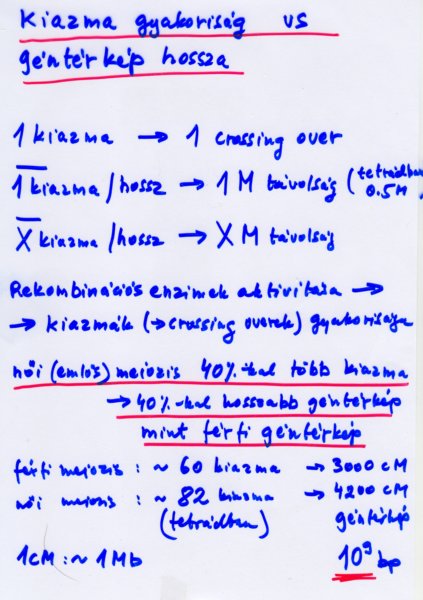 Kiazma gyakoriság vs
géntérkép hossza
1 kiazma → 1 crossing over
1 kiazma/hossz → 1 M távolság (tetrádban
0.5M
X kiazma/hossz → X M távolság
Rekombinációs enzimek aktivitása →
→ kiazmák (→ crossing overek) gyakorisága
női (emlős) meiozis 40%-kal több kiazma
→ 40%-kal hosszabb géntérkép
mint férfi géntérkép
férfi meiozis : ~ 60 kiazma → 3000 cM
női meiozis : ~ 82 kiazma → 4200 cM
(tetrádban) géntérkép
1cM : ~ 1Mb 10⁹ bp